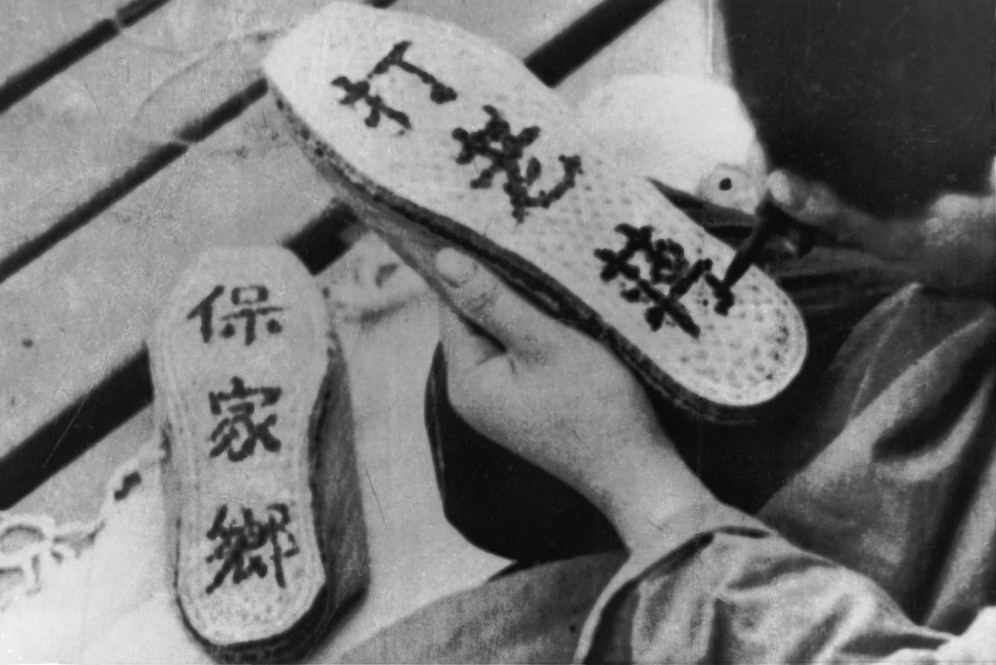 打老蔣
保家鄉